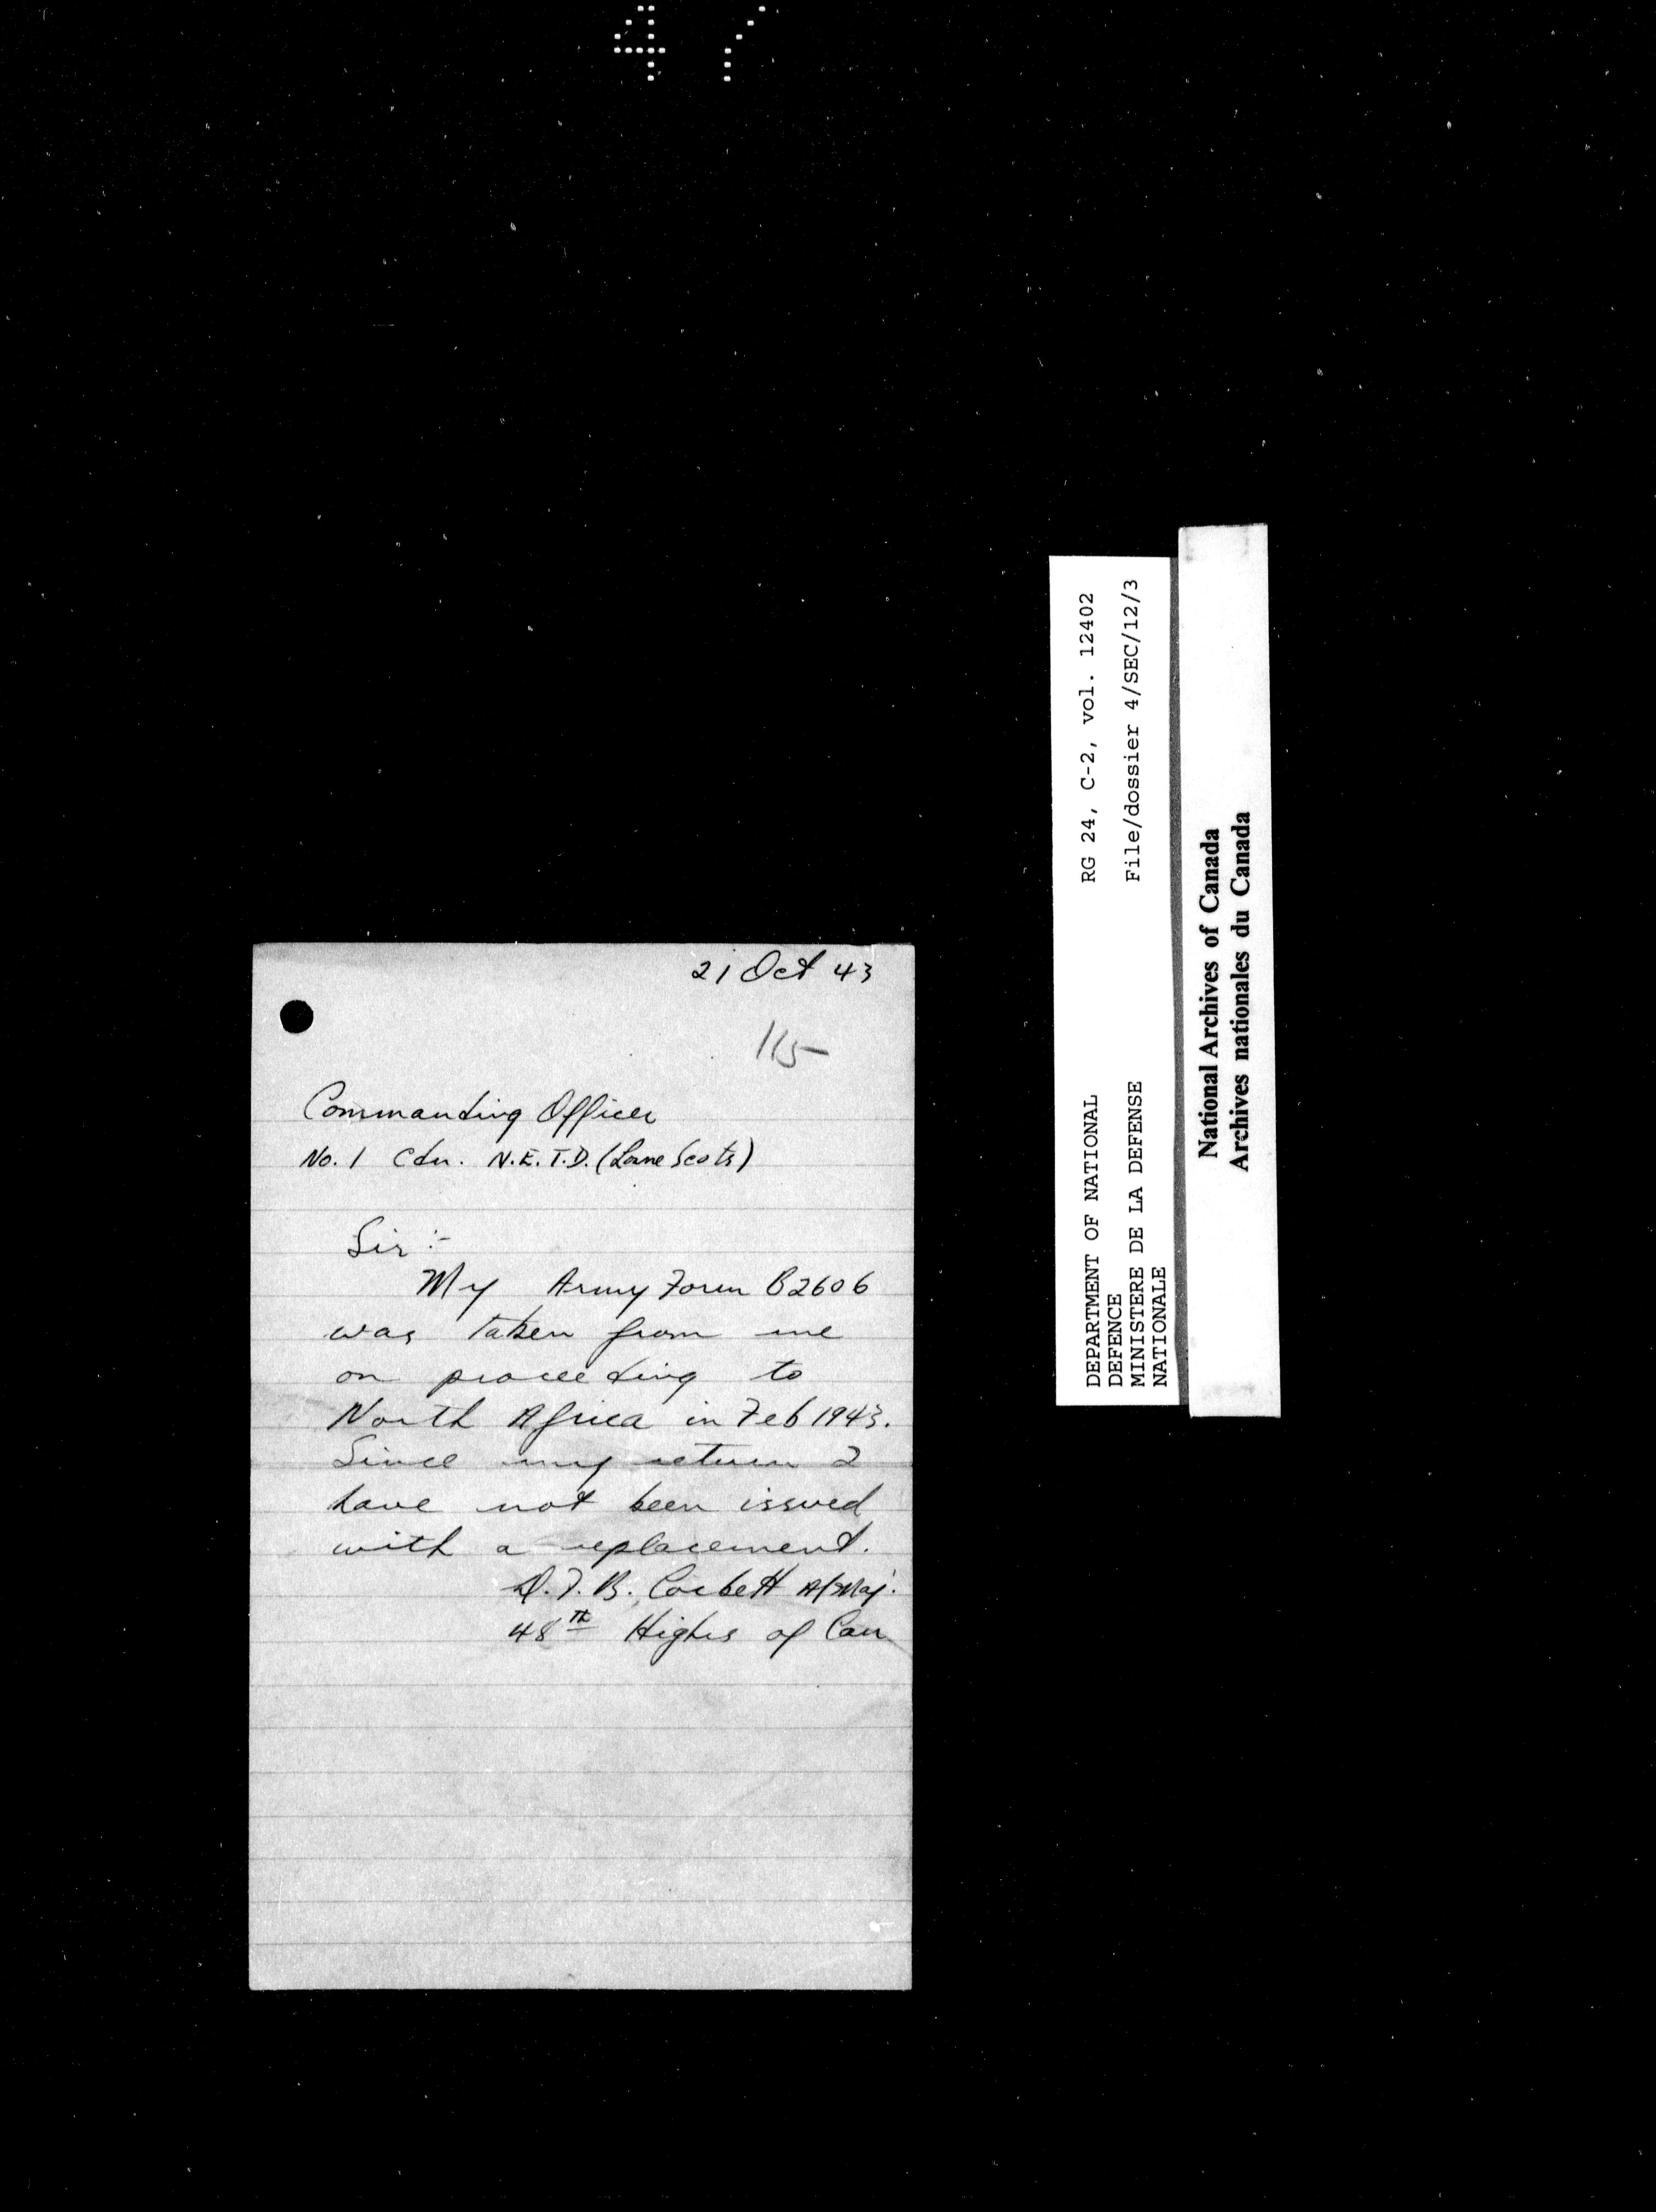 47
21 Oct 43
115
Commanding Officer
No. 1 Cdn. N.E.T.D. (Lorne Scots)
Sir :-
My Army Form B2606
was taken from me
on proceeding to
North Africa in Feb 1943.
Since my return I
have not been issued
with a replacement.
D.F.B. Corbett A/Maj.
48TH Highrs of Can
DEPARTMENT OF NATIONAL
DEFENCE
MINISTERE DE LA DEFENSE
NATIONALE
RG 24, C-2, vol. 12402
File/dossier 4/SEC/12/3
National Archives of Canada
Archives nationales du Canada